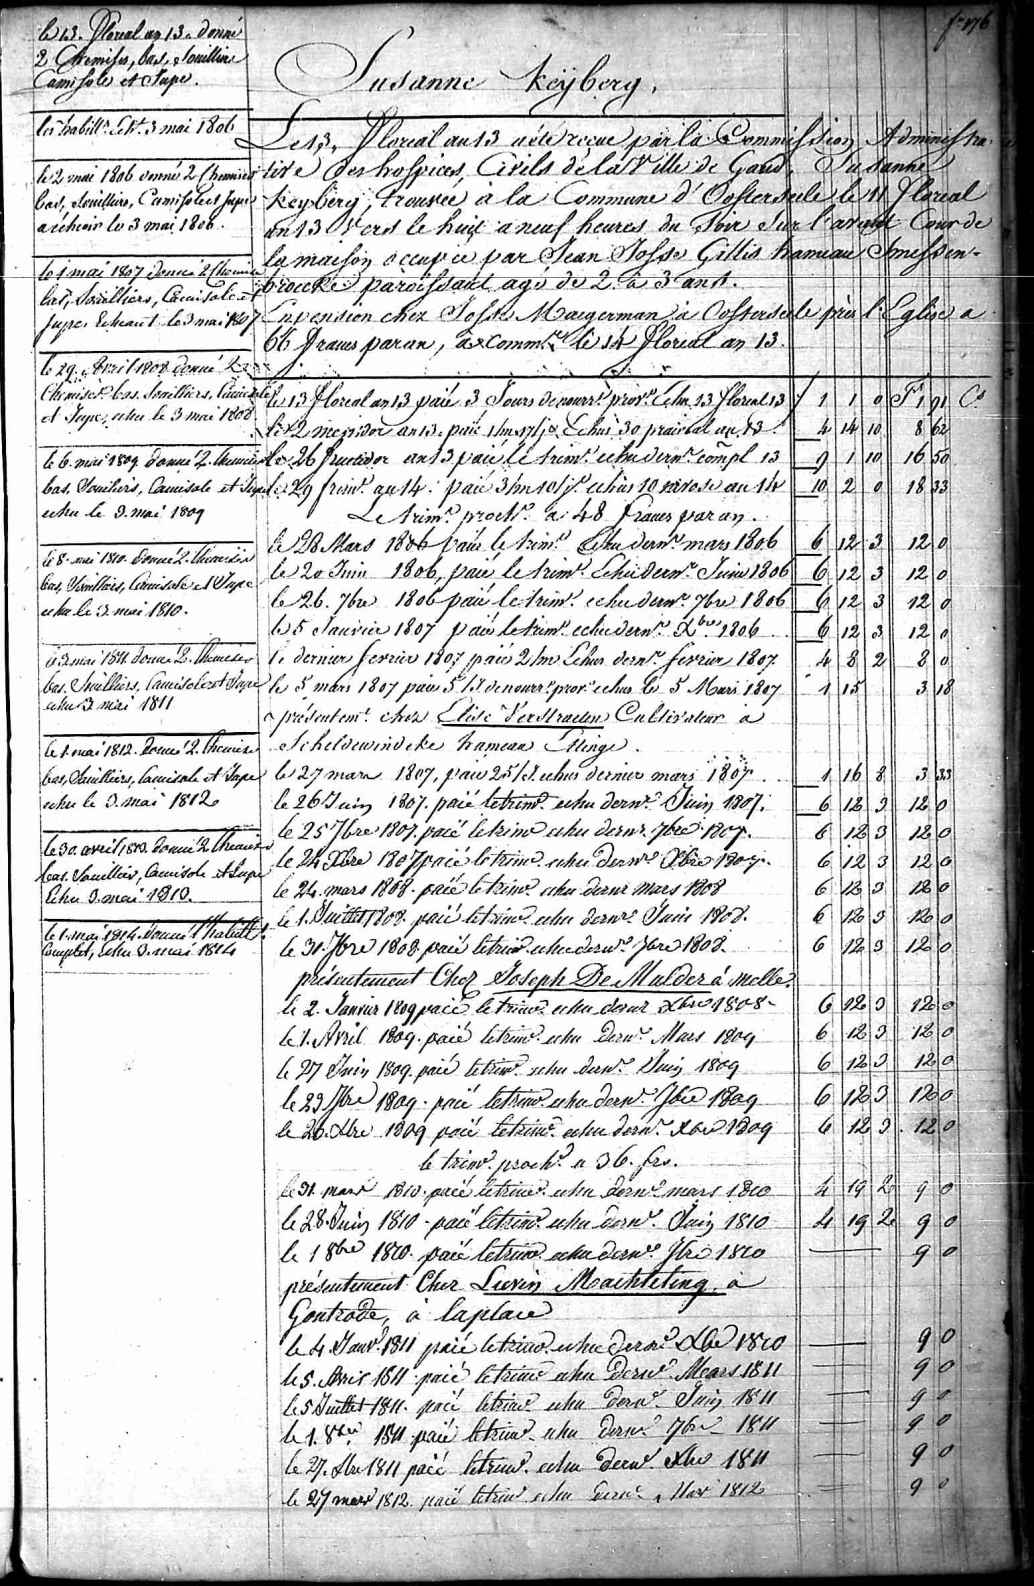 fº 176
le 13. floreal an 13. donné
2 Chemises, bas, Souilliers
Camisole et Jupe.
les habill.ts Ech.t 3 mai 1806
le 2 mai 1806 donné 2 Chemises
bas, Souilliers, Camisole et Jupe
à échoir le 3 mai 1808.
le 1 mai 1807 donné 2 Chemises
bas, Souilliers, Camisole et
Jupe. Echeant le 3 mai 1807
le 29. Avril 1808 donné 2
Chemises bas. Souilliers, Camisole
et Jupe, echu le 3 mai 1808
le 6. mai 1809 donné 2. Chemises
bas. Souiliers, Camisole et Jupe
echu le 3. mai 1809
le 8. mai 1810. donné 2. Chemises
bas, Souilliers, Camisole et Jupe
echu le 3. mai 1810.
le 3. mai 1811. donné 2. Chemises
bas, Souilliers, Camisole et Jupe
echu 3 mai 1811
le 1. mai 1812. donné 2. Chemises
bas, Souilliers, Camisole et Jupe
echu le 3. mai 1812
le 30. avril 1813. donné 2 Chemises
bas. Souilliers, Camisole et Jupe
Echu 3. mai 1813.
le 1. mai 1814. donné l'habillt.
Complet, echu 3. mai 1814
Susanne Keÿberg,
Le 13, floreal an 13 a été reçue par la Commission Administra-
tive des hospices, Civils de la Ville de Gand, Susanne
Keyberg, trouvée à la Commune d'Oosterseele le 11 floreal
an 13 vers le huit a neuf heures du Soir Sur l'avant Cour de
la maison occupée par Jean Josse Gillis hameau Smissen-
broecke paroissant agé de 2 a 3 ans.
En pension chez Josse Maegerman à Oosterseele près l'Eglise a
66 francs par an, à Comm.r le 14 floreal an 13.
le 13 floreal an 13 paié 3 Jours de nourr.e prov.e Echu 13 floreal 13 1 1 0 F.s 1 91 C.s
le 2 messidor an 13. paié 1 m 17 j.s Echus 30 prairial an 13 4 14 10 8 62
le 26 fructidor an 13 paié le trim.e echu dern.r compl 13 9 1 10 16 50
le 29 frim.e an 14. paié 3 m 10 j.s echus 10 nivose an 14 10 2 0 18 33
Le trim.e proch.n a 48 francs par an.
le 28 Mars 1806 paié le trim.e Echu dern.r mars 1806 6 12 3 12 0
le 20 Juin 1806, paié le trim.e Echu dern.r Juin 1806 6 12 3 12 0
le 26. 7bre 1806 paié le trim.e echu dern.r 7bre 1806 6 12 3 12 0
le 5 Janvier 1807 paié le trim.e echu dern.r Xbre 1806 6 12 3 12 0
le dernier fevrier 1807 paié 2/m Echus dern.r fevrier 1807 4 8 2 8 0
le 5 mars 1807 paié 5/J.s de nourr.e prov.e echus le 5 Mars 1807 1 15 3 18
présentem.t chez Elise Verstraeten Cultivateur à
Scheldewindeke hameau Etinge.
le 27 mars 1807, paié 25/J.s echus dernier mars 1807. 1 16 8 3 33
le 26 Juin 1807. paié le trim.e echu dern.r Juin 1807. 6 12 3 12 0
le 25 7bre 1807. paié le trim.e echu dern.r 7bre 1807. 6 12 3 12 0
le 24 Xbre 1807 paié le trim.e echu dern.r Xbre 1807. 6 12 3 12 0
le 24. mars 1808. paié le trim.e echu dernr mars 1808 6 12 3 12 0
le 1. Juillet 1808. paié le trim.e echu dern.r Juin 1808. 6 12 3 12 0
le 31. 7bre 1808. paié le trim.e echu dern.r 7bre 1808. 6 12 3 12 0
présentement Chez Joseph De Mulder à Melle.
le 2. Janvier 1809 paié le trim.e echu dernr Xbre 1808. 6 12 3 12 0
le 1. Avril 1809. paié le trim.e echu dern.r Mars 1809 6 12 3 12 0
le 27 Juin 1809. paié le trim.e echu dern.r Juin 1809 6 12 3 12 0
le 23 7bre 1809. paié le trim.e echu dern.r 7bre 1809 6 12 3 12 0
le 26. Xbre 1809 paié le trim.e echu dern.r Xbre 1809 6 12 3. 12 0
le trim.e proch.n a 36. frs.
le 31. mars 1810. paié le trim.e echu dern.r mars 1810 4 19 2 9 0
le 28. Juin 1810. paié le trim.e echu dern.r Juin 1810 4 19 2 9 0
le 1 8bre 1810. paié le trim.e echu dern.r 7bre 1810 9 0
présentement Chez Lievin Machteling, à
Gontrode, à la place
le 4. Janv.r 1811 paié le trim.e echu dern.r Xbre 1810 9 0
le 5. Avril 1811 paié le trim.e echu dern.r Mars 1811 9 0
le 5 Juillet 1811. paié le trim.e echu dern.r Juin 1811 9 0
le 1. 8bre 1811 paié le trim.e echu dern.r 7bre 1811 9 0
le 27. Xbre 1811 paié le trim.e echu dern.r Xbre 1811 9 0
le 27 mars 1812. paié le trim.e echu dern.r Mars 1812 9 0